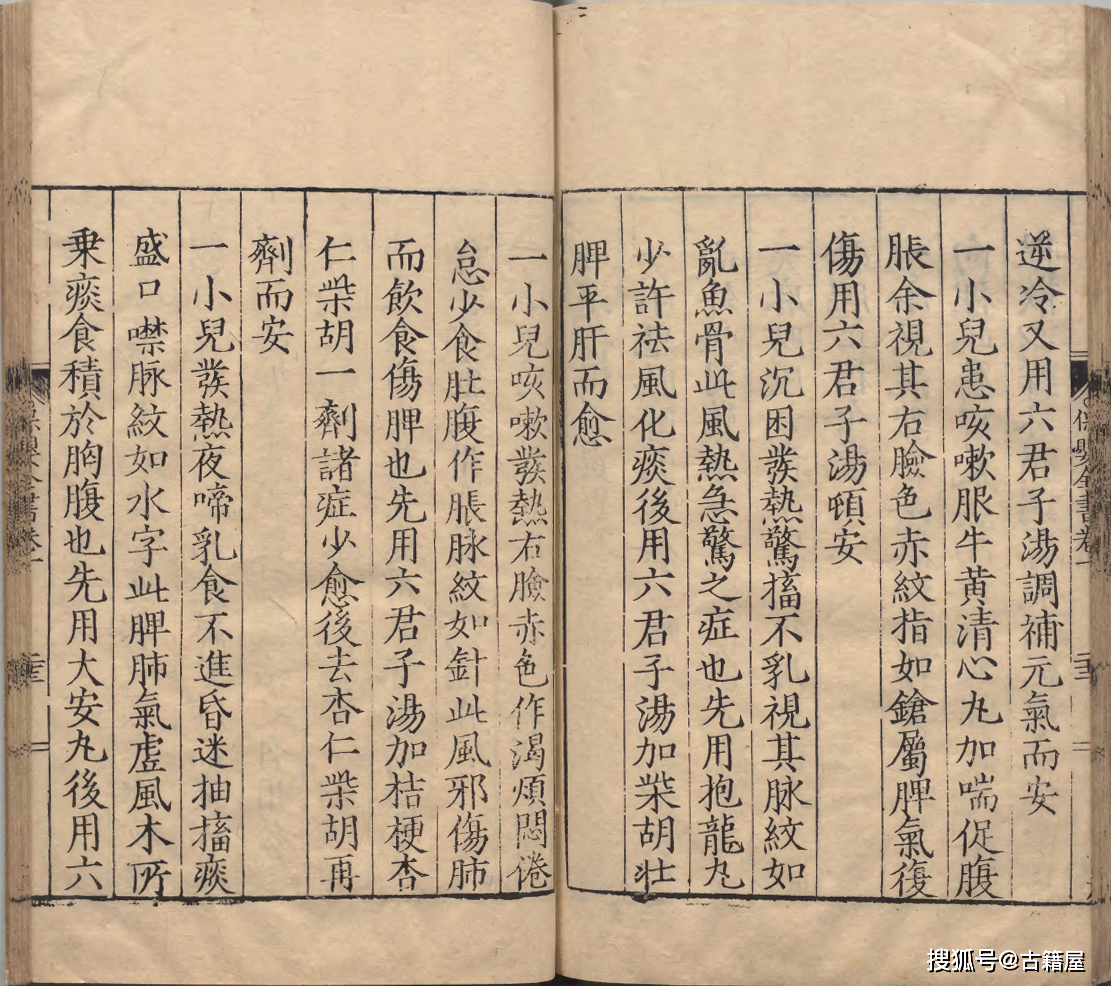 逆冷又用六君子湯調補元氣而安
一小兒患咳嗽服牛黄清心丸加喘促腹
脹余視其右臉色赤紋指如鎗屬脾氣復
傷用六君子湯頓安
一小兒沉困發熱驚搐不乳視其脉紋如
亂魚骨此風熱急驚之症也先用抱龍丸
少許祛風化痰後用六君子湯加柴胡壮
脾平肝而愈
一小兒咳嗽發熱右臉赤色作渴煩悶倦
怠少食肚腹作脹脉紋如針此風邪傷肺
而飲食傷脾也先用六君子湯加桔梗杏
仁柴胡一劑諸症少愈後去杏仁柴胡再
劑而安
一小兒發熱夜啼乳食不進昏迷抽搐痰
盛口噤脉紋如水字此脾肺氣虛風木所
乗痰食積於胸腹也先用大安丸後用六
保嬰全書卷一
搜狐号@古籍屋